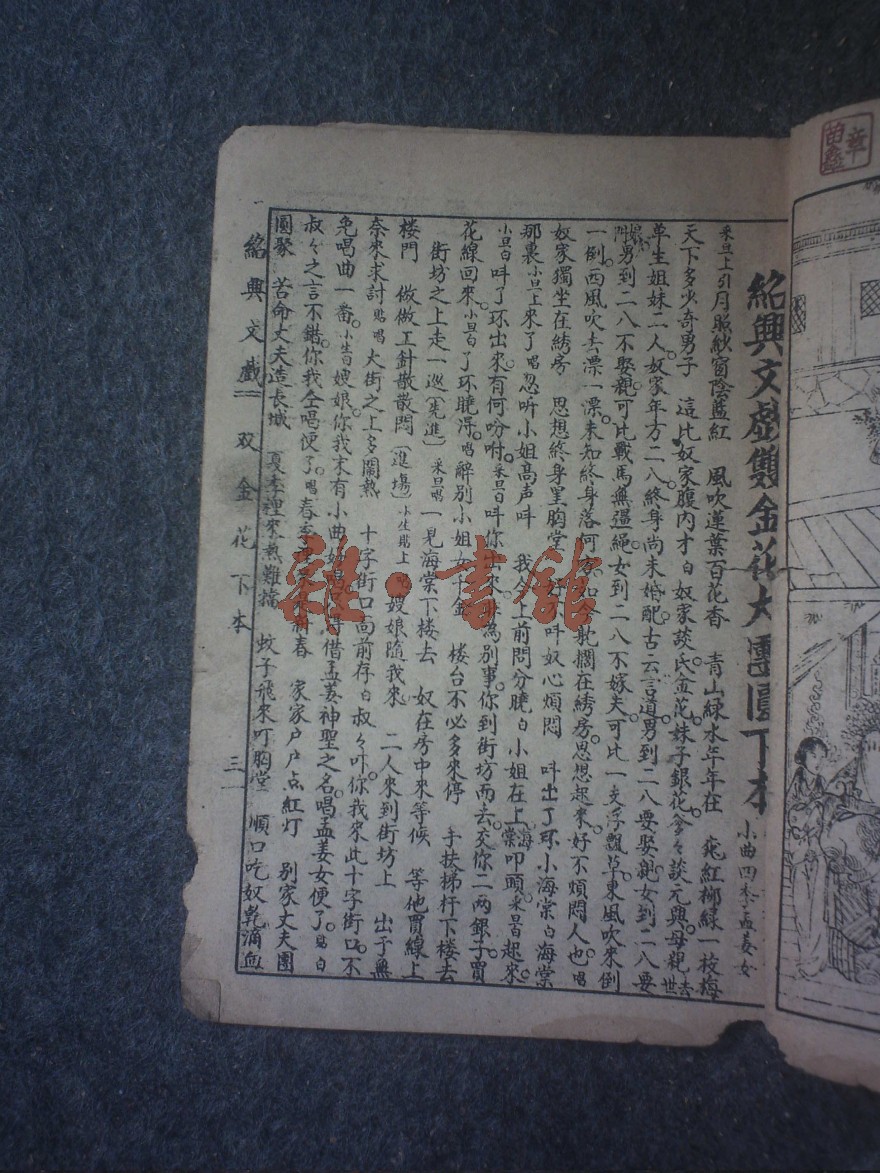 紹興文戲雙金花大團圓下本 小曲四季孟姜女
采旦上引月照紗窗陰蓝紅 風吹蓮葉百花香 青山綠水年年在 桃紅柳綠一枝梅
天下多少奇男子 這比奴家腹內才白奴家談氏金花妹子銀花爹々談元與母親去世
單生姐妹二人奴家年方二八終身尚未婚配古云言道男到二八要娶親女到二八要
男到二八不娶親可比戰馬無韁繩女到二八不嫁夫可比一支浮飄草東風吹來倒
一倒西風吹去漂一漂未知終身落何如今躭擱在綉房思想起來好不煩悶人也唱
奴家獨坐在綉房 思想終身在胸堂 好不叫奴心煩悶 叫出了环小海棠白海棠
那裏小旦上來了唱忽听小姐高声叫 我今上前問分曉白小姐在上海棠叩頭采旦白起來
小旦白叫了环出來有何吩咐采旦白叫你出來為別事你到街坊而去交你二両銀子買
花線回來小旦白了环曉得唱辭別小姐 楼台不必多來停 手扶梯杆下楼去
街坊之上走一巡(先進)采旦唱一見海棠下楼去 奴在房中來等候 等他買線上
楼門 做做工針散散悶(進塲)小生貼上唱嫂娘隨我來 二人來到街坊上 出于無
奈來求討貼唱大街之上多鬧熱 十字街口面前存白叔々吓你我來此十字街口不
免唱曲一番小生白嫂娘你我末有小曲好唱 借孟姜神聖之名唱孟姜女便了貼白
叔々之言不錯你我仝唱便了唱春季 新春 家家户户点紅灯 別家丈夫團
團聚 苦命丈夫造長城 夏季裡來熱難擋 蚊子飛來叮胸堂 順口吃奴乾滴血
紹興文戲 双金花下本 三
雜·書館